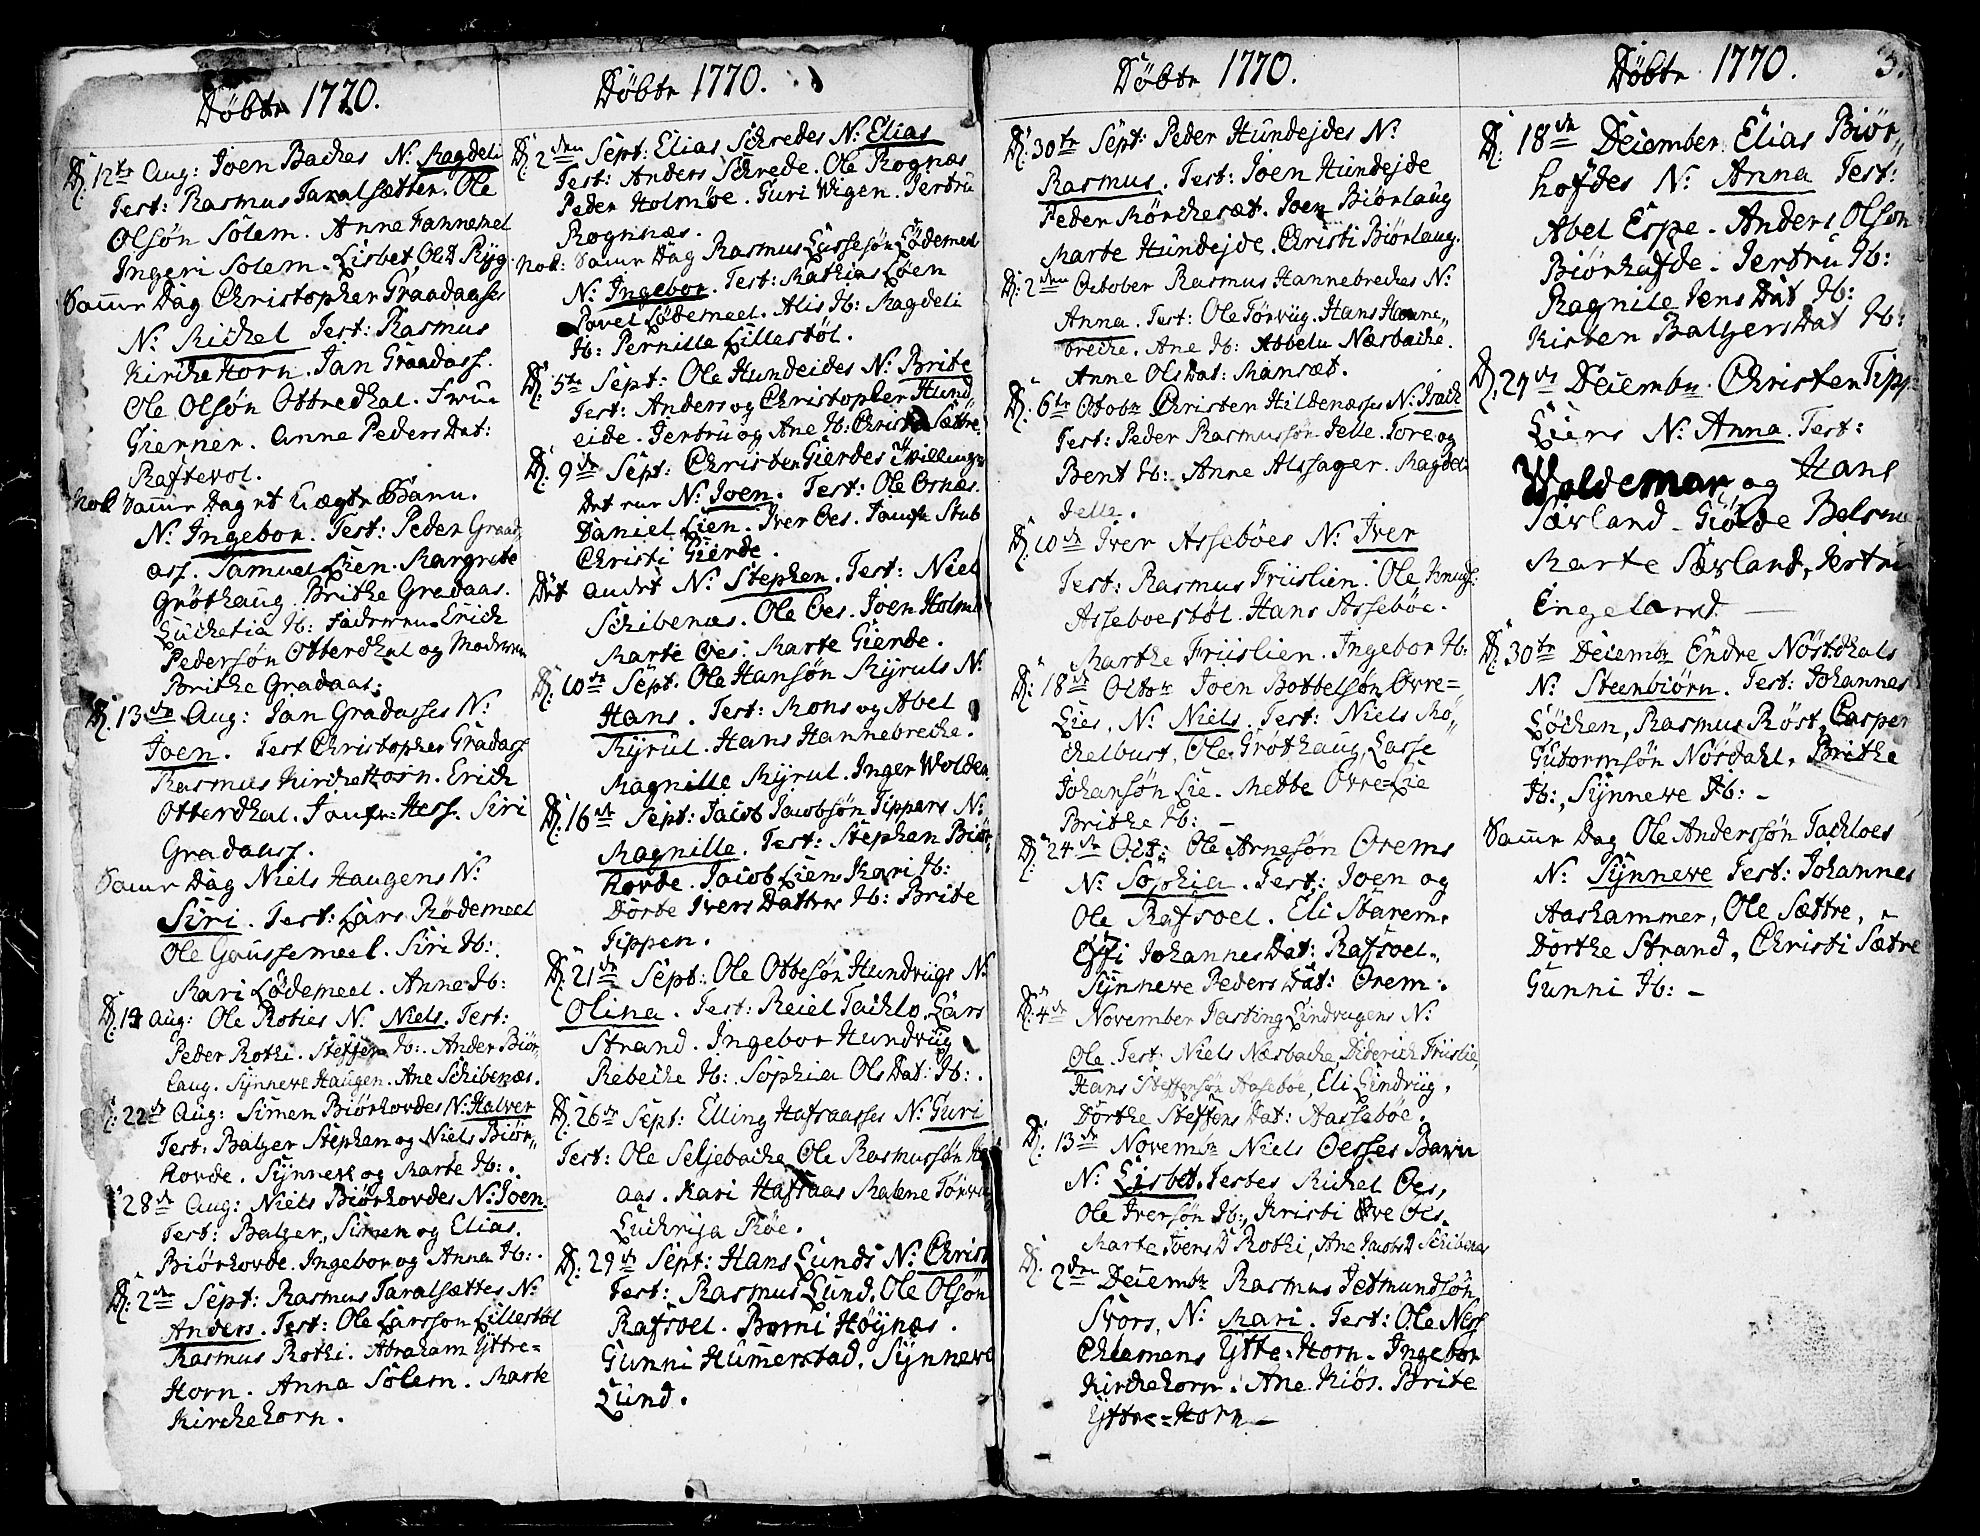 Döbte 1770.
D: 12te Aug: Joen Backes N: Magdeli
Test: Rasmus Taralsætter. Ole
Olsøn Solem. Anne Fannemel
Ingeri Solem. Lisbet Ols D Ryg.
Samme Dag Christopher Graadaases
N: Michel Test: Rasmus
KircheHorn. Jan Graadass.
Ole Olsøn Ottredhal. Frue
Gierner. Anne Peders Dat:
Raftevol.
Nok Samme Dag et uægte Barn.
N: Ingebor. Test: Peder Graad,,
ass. Samuel Lien. Margrete
Gröthaug. Brithe Gradaas.
Luchetia Ib: Faderen Erich
Pedersøn Otterdhal og Moderen
Brithe Gradaas:
D: 13de Aug: Jan Gradasses N:
Joen. Test Christopher Gradass
Rasmus KircheHorn. Erich
Otterdhal. Jomfr: Hess. Siri
Gradaass.
Samme Dag Niels Haugens N:
Siri. Test: Lars Rödemeel
Ole Gaussemeel. Siri Ib:
Mari Lødemeel. Anne Ib:
D: 19 Aug: Ole Roties N: Niels. Test:
Peder Rothi. Steffen Ib: Ander Biör,,
laug. Synneve Haugen. Ane Schibenæs.
D: 22de Aug: Simen Biörhovdes N: Halver
Test: Balzer Stephen og Niels Biör,,
hovde. Synneve og Marte Ib:.
28de Aug: Niels Biörhovdes N: Joen.
Test: Balzer, Simen og Elias.
Biörhovde. Ingebor og Anna Ib:.
D: 2den Sept: Rasmus Taralsættes N:
Anders. Test: Ole Larsson Lillestøl
Rasmus Rothi. Abraham Yttre=
Horn. Anna Solem. Marte
Kirchehorn.
Döbte 1770.
D: 2den Sept: Elias Schredes N: Elias
Test: Anders Schrede. Ole Rognæs
Peder Holmöe. Guri Wigen. Jertru
Rognnæs.
Nok: Samme Dag Rasmus Lassesøn Lødemeel
N: Ingebor. Test: Mathias Løen
Povel Lødemeel. Alis Ib: Magdeli
Ib: Pernille Lillestøl.
D: 5te Sept: Ole Hundeides N: Brite
Test: Anders og Christopher Hund,,
eide. Jertru og Ane Ib: Christi Sættre
D: 9de Sept: Christen Gierdes Tvillinger
Det ene N: Joen. Test: Ole Osnæs.
Daniel Lien. Iver Oes. Jomfr Stub
Christi Gierde.
Det andet N: Stephen. Test: Niels
Schibenæs. Ole Oes. Joen Holm
Marte Oes: Marte Gierde.
D: 10de Sept. Ole Hansøn Myruls N:
Hans. Test: Mons og Abel
Myrul. Hans Hannebreche.
Magnille Myrul. Inger Wolden.
D: 16de Sept: Jacob Jacobsøn Tippens N:
Magnille. Test: Stephen Biör,,
hovde. Jacob Lien Kari Ib:
Dorte Ivers Datter Ib: Brite
Tippen.
D: 21de Sept: Ole Ottesøn Hundvugs N:
Olina. Test: Reiel Tachlo. Lars
Strand. Ingebor Hundvug
Rebecke Ib: Sophia Ols Dat: Ib:.
D: 26de Sept: Elling Hafsaasses N: Guri
Test: Ole Seljebacke Ole Rasmussøn
aas. Kari Hafsaas Malene Törvug
Luchrija Röe.
D: 29de Sept: Hans Lunds N: Christi
Test: Rasmus Lund. Ole Olsøn
Rafsvel. Borni Höynæs.
Gunni Hummerstad. Synneve
Lund.
Döbte 1770.
D: 30te Sept: Peder Hundejdes N:
Rasmus. Test: Joen Hundejde
Peder Mörchesæt. Joen Biörlaug
Marte Hundejde. Christi Biörlaug.
D: 2den October Rasmus Hannebreches N:
Anna. Test: Ole Törvug. Hans Hanne,,
breche. Ane Ib: Abbelu Næsbacke.
Anne Ols Dat: Mansæt.
D: 6te Octobr Christen Hildenæsses N: Isach
Test: Peder Rasmussøn Jelle. Tore og
Bent Ib: Anne Alssager. Magdeli
Jelle.
D: 10de Iver Asseböes N: Iver
Test: Rasmus Friislien. Ole Knuds:
Asseboestøl. Hans Asseböe.
Marthe Friislien. Ingebor Ib:
D: 18de Octbr Joen Bottelsøn Øvre=
Lies, N: Niels. Test: Niels Mö,,
chelbust, Ole Gröthaug, Lasse
Johansøn Lie. Mette ØvreLie
Brithe Ib: _
D: 24de Oct: Ole Arnesøn Orems
N: Sophia. Test: Joen og
Ole Rafsvel. Eli Starem.
Effi Johannes Dat: Rafsvel.
Synneve Peders Dat: Orem:.
D: 4de November Fasting Lindvugens N:
Ole. Test: Niels Næsbacke, Diderich Friislie,
Hans Steffensøn Aaseböe, Eli Lindvug,
Dorthe Steffens Dat: Aasseböe.
D: 13de Novembr Niels Oesses Barn
N: Lisbet. Testes Michel Oes,
Ole Iversøn Ib:, Kristi Øvre Oes.
Marte Ivers D Rothi, Ane Jacobs D Schibenæs
D: 2den Decembr Rasmus Jetmundsøn
Svors, N: Mari. Test: Ole Ness
Chlemens Ytte-Horn. Ingebor
Kirchehorn. Ane Kiös. Brite
Yttre=Horn _
Döbte 1770. 3.
D: 18de December Elias Biör,,
hofdes N: Anna Test:
Abel Espe. Anders Olsøn
Biörhafde. Jertru Ib:
Ragnile Jens Dat Ib:
Kirsten Balzers Dat Ib:
D: 27de Decembr Christen Tipp
Liens N: Anna. Test:
Woldemar og Hans
Særland. Giöde Belsm
Marte Særland, Jertru
Engeland. _
D: 30te Decembr Endre Nöstdhals
N: Steenbiørn. Test: Johannes
Løchen, Rasmus Röst, Casper
Gutormsøn Nösdahl, Brithe
Ib:, Synneve Ib: _
Samme Dag Ole Anderssøn Tachloes
N: Synneve Test: Johannes
Aashammer, Ole Sættre,
Dorthe Strand, Christi Sætre
Gunni Ib: _